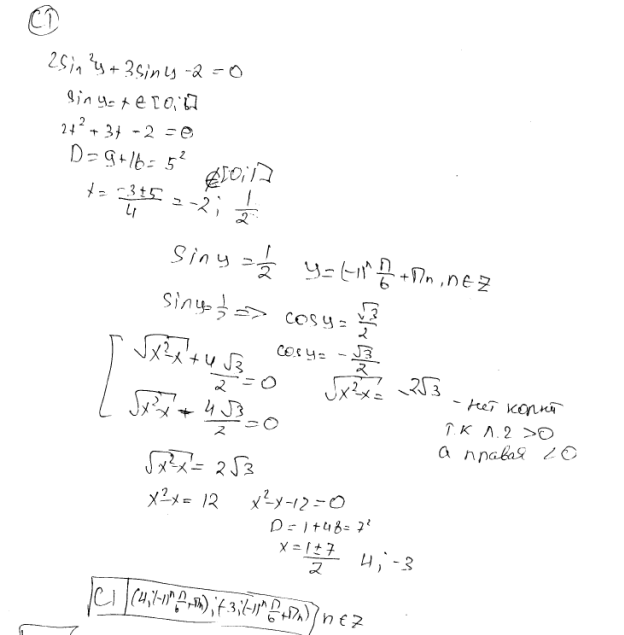 C1
2sin²y + 3sin y - 2 = 0
sin y = t ∈ [0;1]
2t² + 3t - 2 = 0
D = 9 + 16 = 5²
t = (-3 ± 5)/4 = -2; 1/2
∉[0;1]
sin y = 1/2 y = (-1)ⁿ П/6 + Пn, n ∈ Z
sin y = 1/2 => cos y = √3/2
cos y = -√3/2
[ √(x²-x) + 4√3/2 = 0
√(x²-x) - 4√3/2 = 0
√(x²-x) = -2√3 - нет корней
т к л.2 >0
а правая <0
√(x²-x) = 2√3
x²-x = 12 x²-x-12 = 0
D = 1 + 48 = 7²
x = (1 ± 7)/2 4; -3
C1 (4; (-1)ⁿ П/6 + Пn); (-3; (-1)ⁿ П/6 + Пn) n ∈ Z